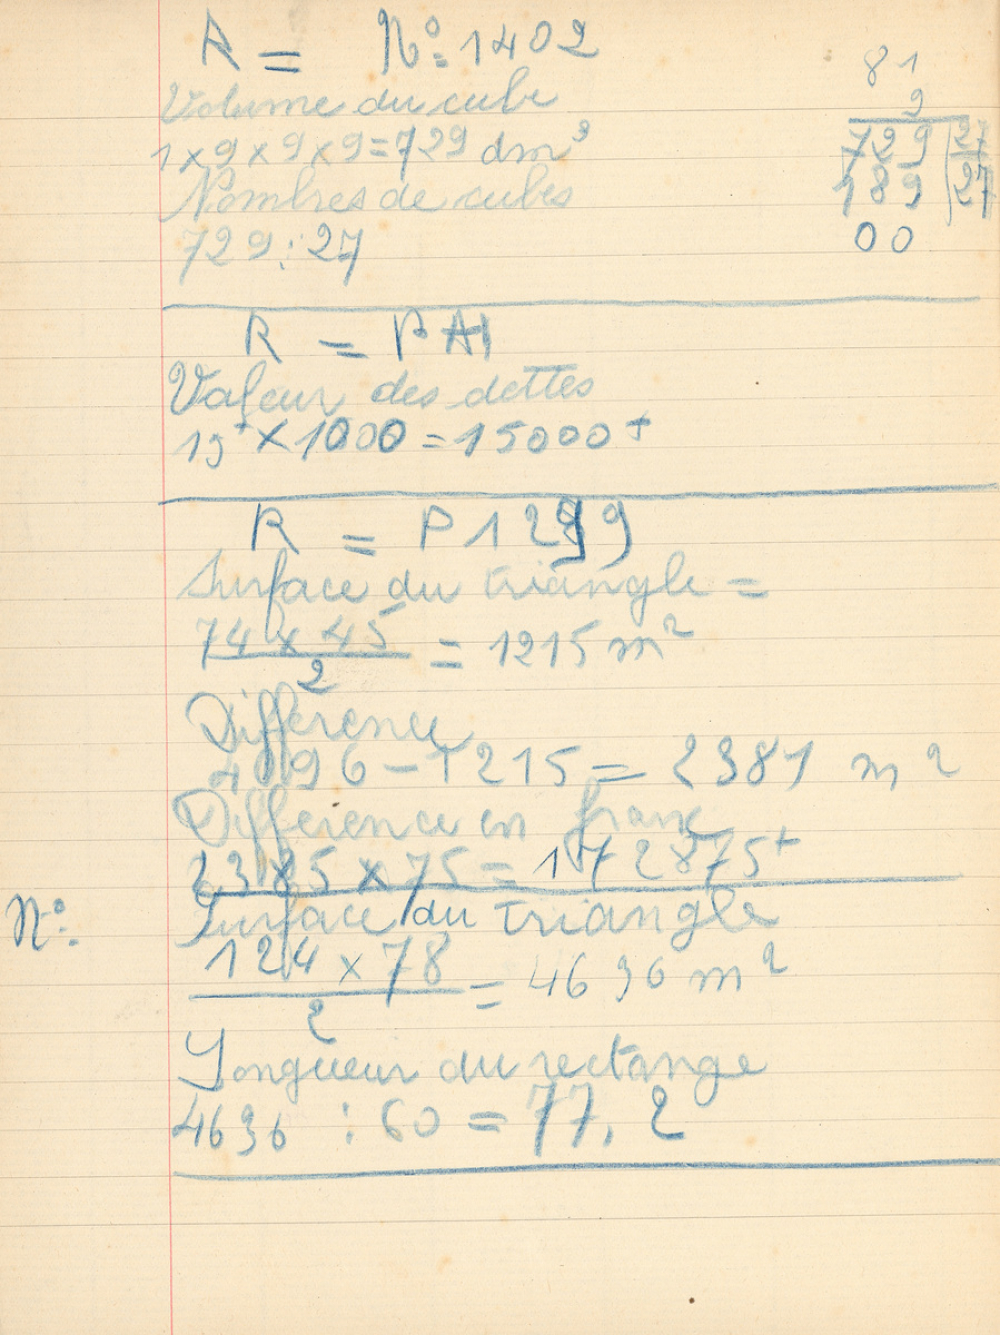 R = N° 1402
Volume du cube
1 × 9 × 9 × 9 = 729 dm³
Nombres de cubes
729 : 27
81
9
729 | 27
189 | 27
00
R =
Valeur des dettes
15 × 1000 = 15000 f
R = P 1299
Surface du triangle =
74 × 45 / 2 = 1215 m²
Différence
1215 = 2381 m²
Différence en franc
× 75 = 172875 f
N°: Surface du triangle
124 × 78 / 2 = 4636 m²
Longueur du rectange
4636 : 60 = 77,2